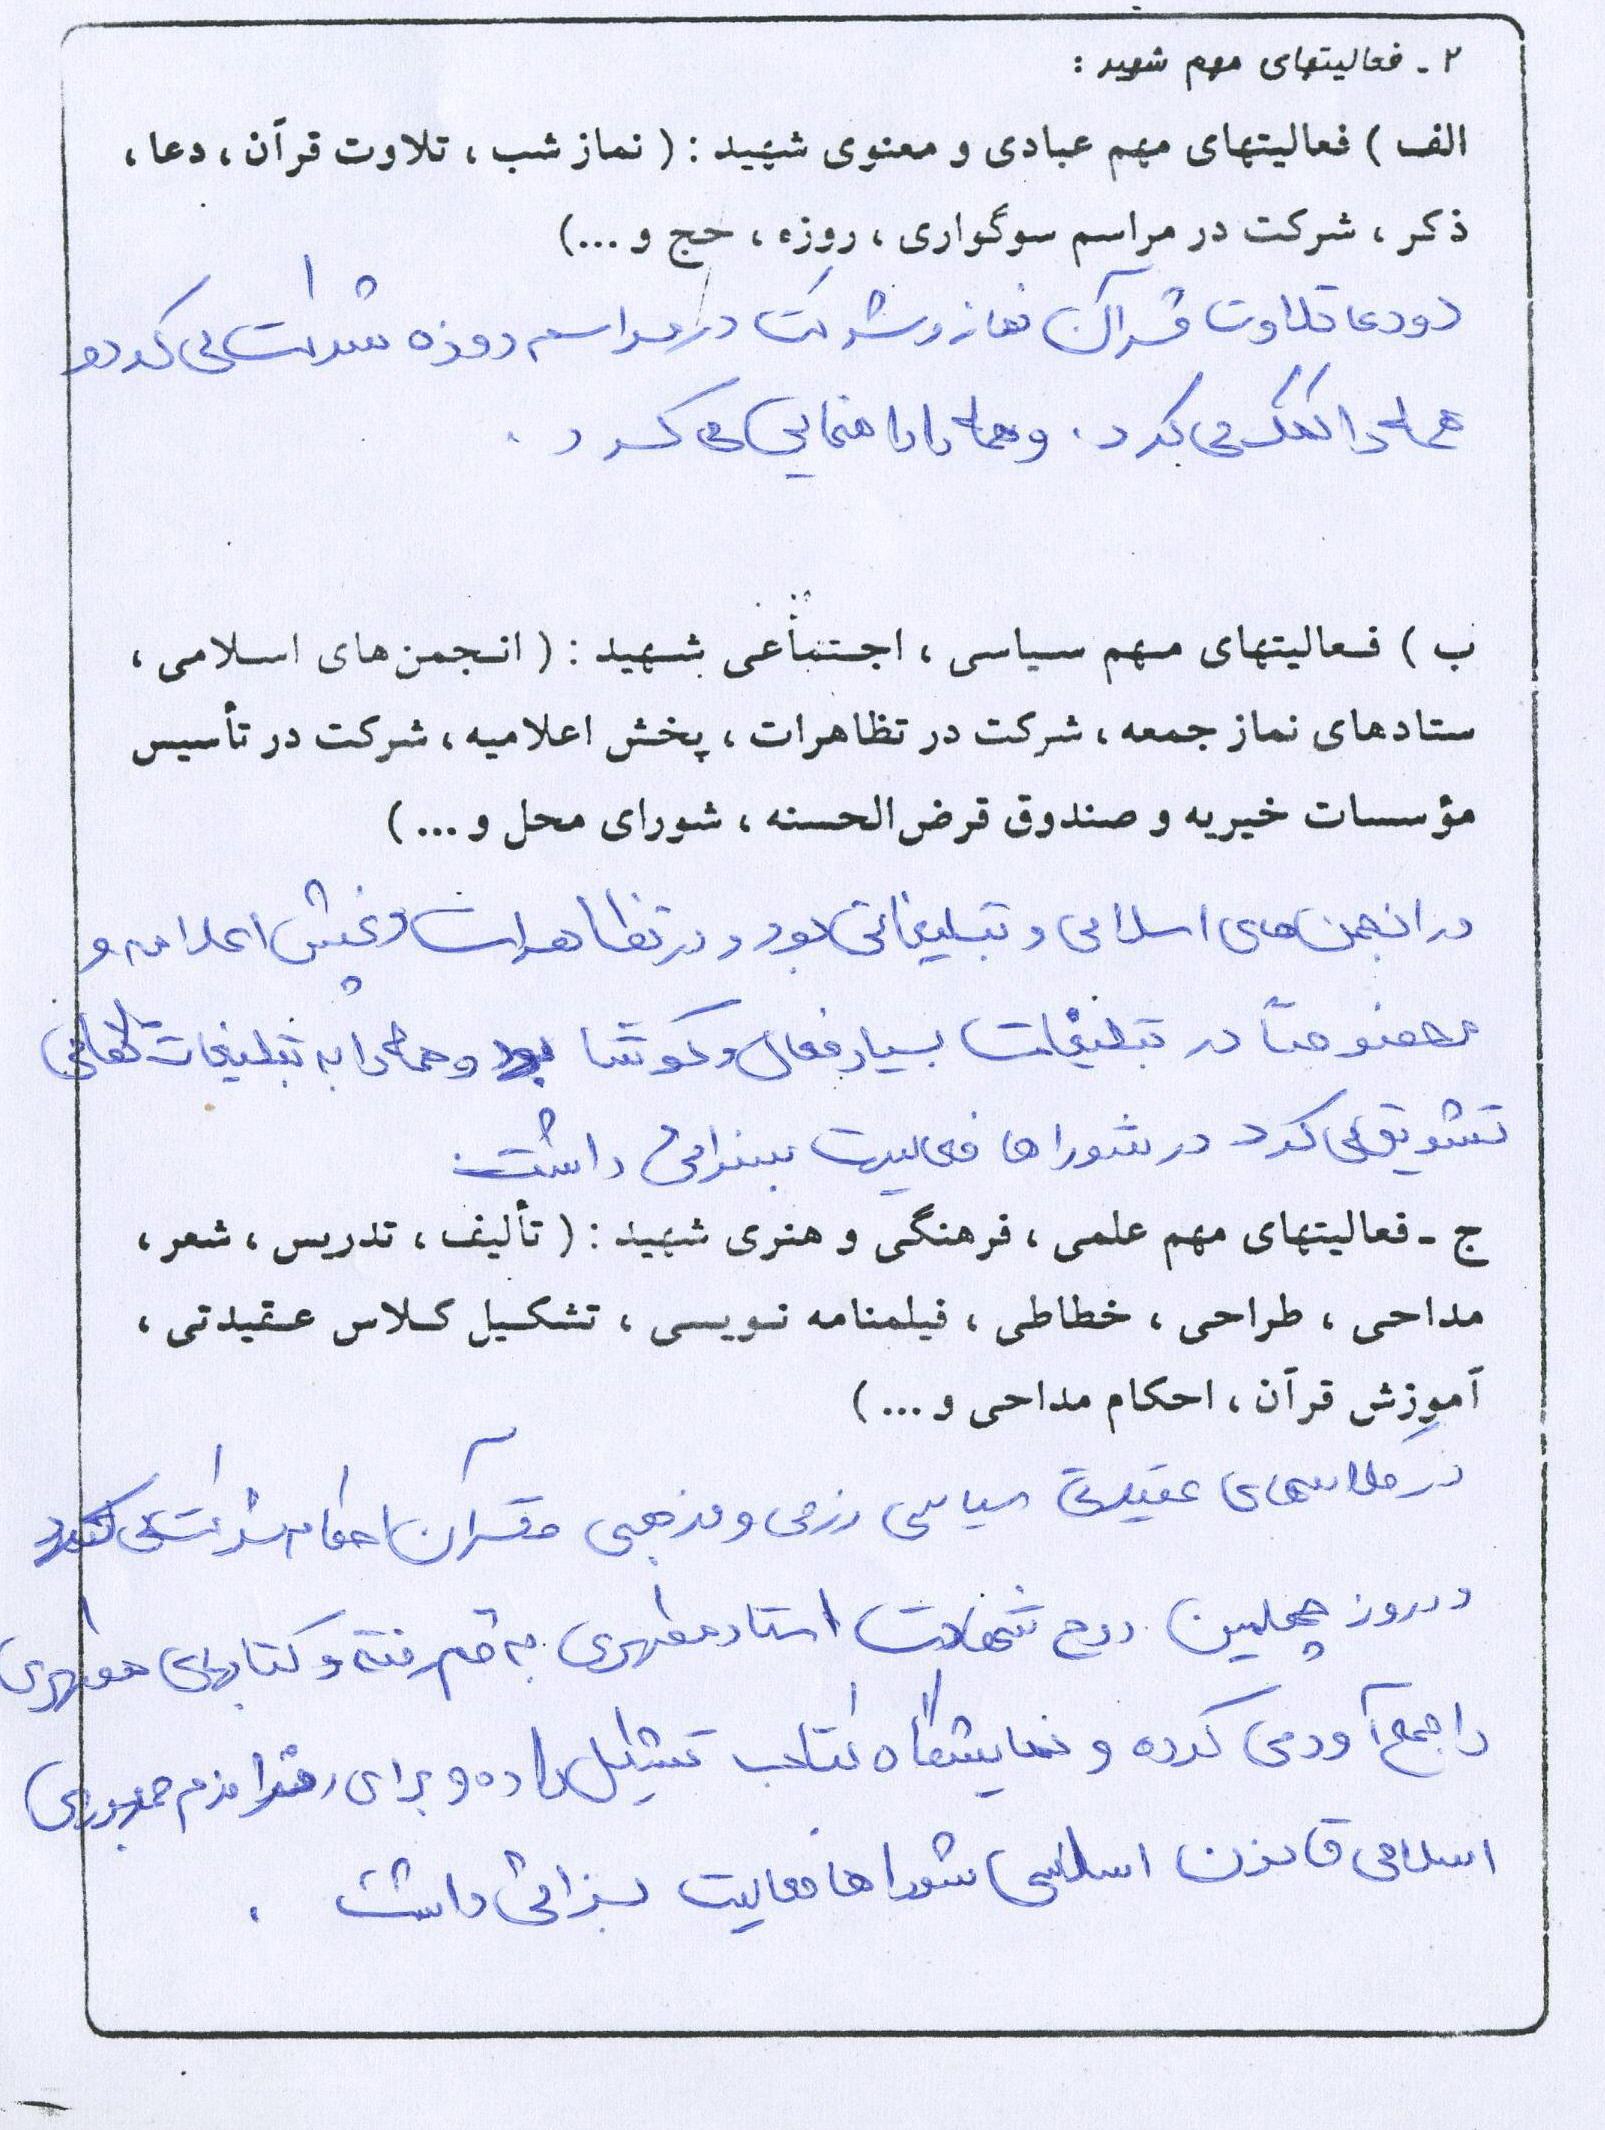 ۲ ـ فعالیتهای مهم شهید :
الف ) فعالیتهای مهم عبادی و معنوی شهید : ( نماز شب ، تلاوت قرآن ، دعا ،
ذکر ، شرکت در مراسم سوگواری ، روزه ، حج و ...)
دعا تلاوت قرآن نماز و شرکت در مراسم روزه شرکت می کرد و
همه را کمک می کرد . و همه را راهنمایی می کرد .
ب ) فعالیتهای مهم سیاسی ، اجتماعی شهید : ( انجمن‌های اسلامی ،
ستادهای نماز جمعه ، شرکت در تظاهرات ، پخش اعلامیه ، شرکت در تأسیس
مؤسسات خیریه و صندوق قرض‌الحسنه ، شورای محل و ... )
در انجمن های اسلامی و تبلیغاتی بود و در تظاهرات و پخش اعلامیه و
مخصوصاً در تبلیغات بسیار فعال و کوشا بود و همه را به تبلیغات
تشویق می کرد در شوراها فعالیت بسزایی داشت .
ج ـ فعالیتهای مهم علمی ، فرهنگی و هنری شهید : ( تألیف ، تدریس ، شعر ،
مداحی ، طراحی ، خطاطی ، فیلمنامه نویسی ، تشکیل کلاس عقیدتی ،
آموزش قرآن ، احکام مداحی و ... )
در کلاسهای عقیدتی سیاسی رزمی و مذهبی قرآن احکام شرکت می کرد
در روز چهلمین شهادت استاد مطهری به قم رفته و کتابهای مطهری
را جمع آوری کرده و نمایشگاه کتاب تشکیل داده و برای رفراندم جمهوری
اسلامی قانون اساسی شوراها فعالیت بسزائی داشت .